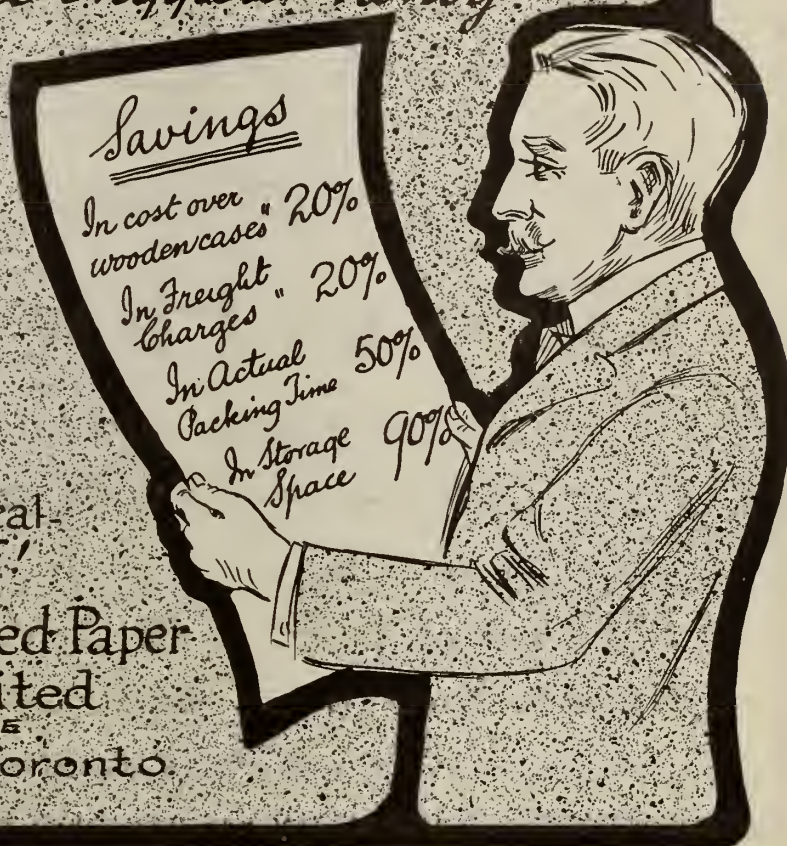 Savings
In cost over
wooden cases " 20%
In Freight
Charges " 20%
In Actual
Packing Time 50%
In Storage
Space 90%
cal-
ed Paper
ited
oronto